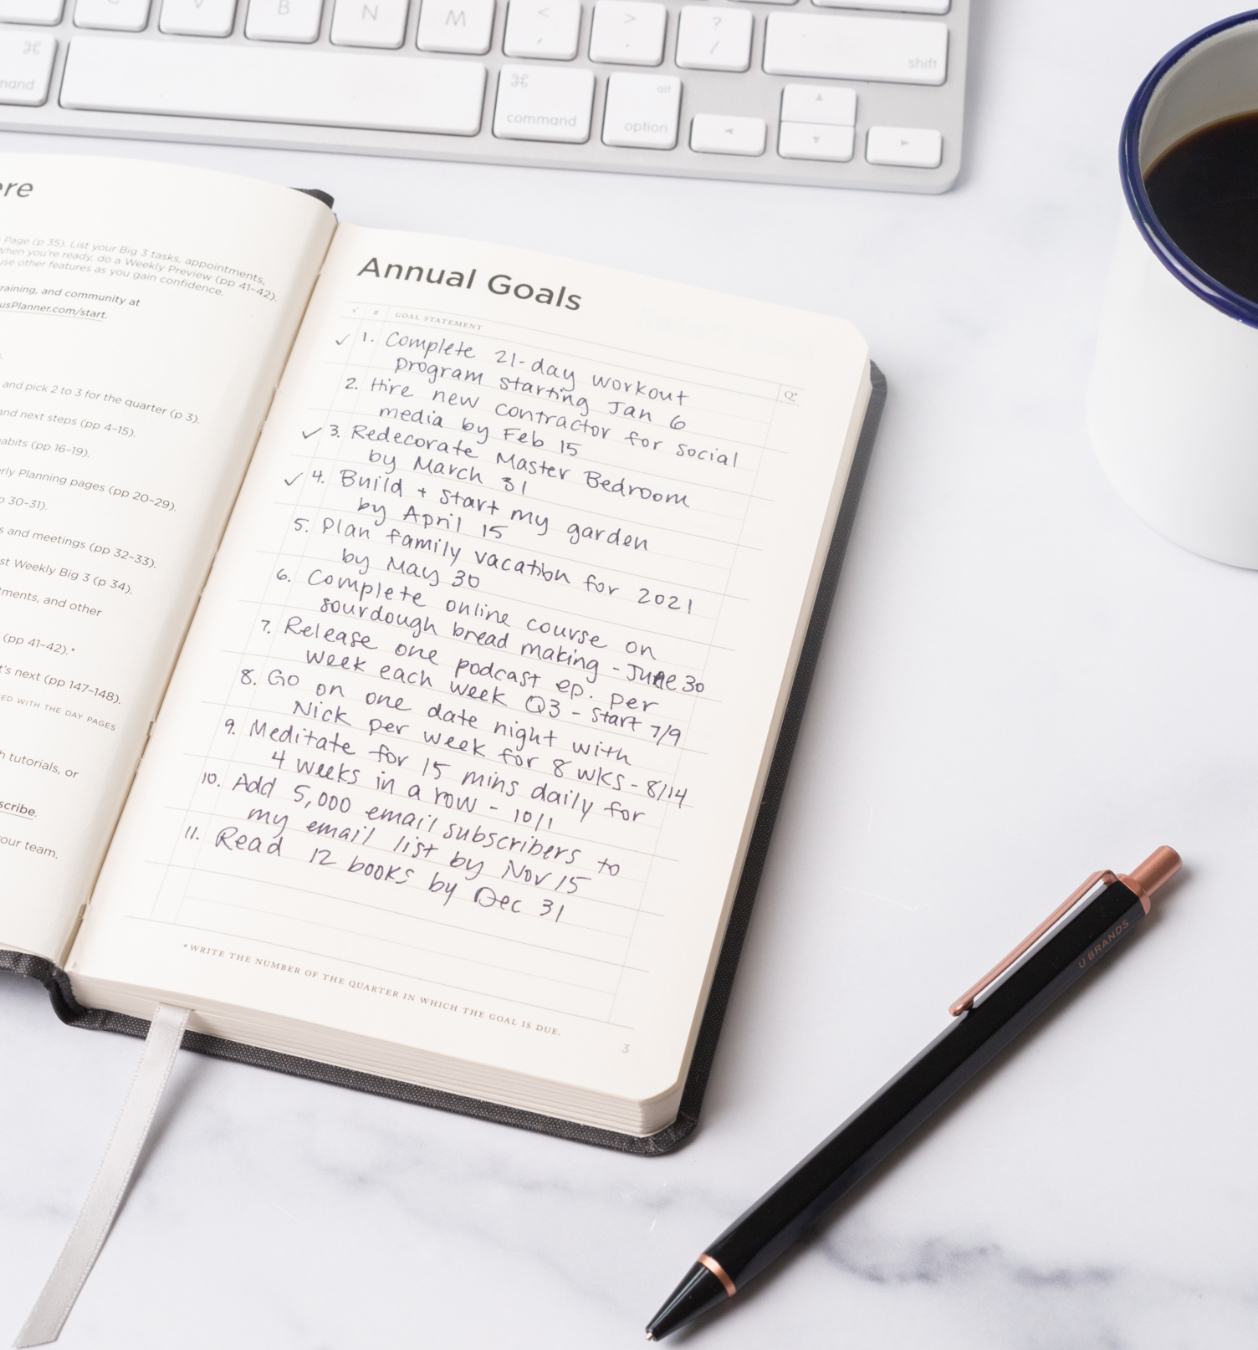 C
V
B
N
M
<
,
>
.
?
/
shift
⌘
mand
⌘
command
alt
option
ere
Page (p 35). List your Big 3 tasks, appointments,
When you're ready, do a Weekly Preview (pp 41–42).
use other features as you gain confidence.
raining, and community at
usPlanner.com/start.
and pick 2 to 3 for the quarter (p 3).
and next steps (pp 4–15).
abits (pp 16–19).
rly Planning pages (pp 20–29).
p 30–31).
s and meetings (pp 32–33).
st Weekly Big 3 (p 34).
tments, and other
(pp 41–42).*
t's next (pp 147–148).
ED WITH THE DAY PAGES
h tutorials, or
scribe.
your team.
Annual Goals
✓ # GOAL STATEMENT Q*
✓ 1. Complete 21-day workout
program starting Jan 6
2. Hire new contractor for social
media by Feb 15
✓ 3. Redecorate Master Bedroom
by March 31
✓ 4. Build + start my garden
by April 15
5. Plan family vacation for 2021
by May 30
6. Complete online course on
sourdough bread making - June 30
7. Release one podcast ep. per
week each week Q3 - start 7/9
8. Go on one date night with
Nick per week for 8 wks - 8/14
9. Meditate for 15 mins daily for
4 weeks in a row - 10/1
10. Add 5,000 email subscribers to
my email list by Nov 15
11. Read 12 books by Dec 31
*WRITE THE NUMBER OF THE QUARTER IN WHICH THE GOAL IS DUE.
3
U BRANDS